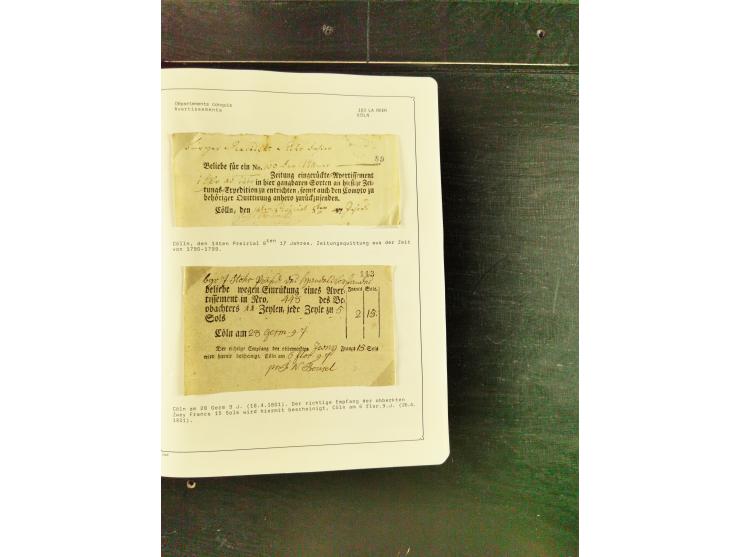 Départements conquis
Avertissements
103 LA ROER
CÖLN
89
Beliebe für ein No. 100 der
Zeitung eingerückte Avertissement
in hier gangbaren Sorten an hiesige Zei-
tungs-Expedition zu entrichten, somit auch den Compto zu
behöriger Quittirung anhero zurückzusenden.
Cölln, den
Cölln, den 14ten Prairial 6ten 17 Jahres. Zeitungsquittung aus der Zeit
von 1790-1799.
113
beliebe wegen Einrükung eines Aver-
tissement in Nro. 448 des Be-
obachters 11 Zeylen, jede Zeyle zu 5
Sols
Francs Sols.
2 15
Cöln am 28 Germ 9 J
Der richtige Empfang der obbemerkten Zwey Francs 15 Sols
wird hiemit bescheinigt, Cöln am 6 flor. 9 J
Cöln am 28 Germ 9 J. (18.4.1801). Der richtige Empfang der obberkten
Zwey Francs 15 Sols wird hiermit bescheinigt, Cöln am 6 flor.9.J. (26.4.
1801).